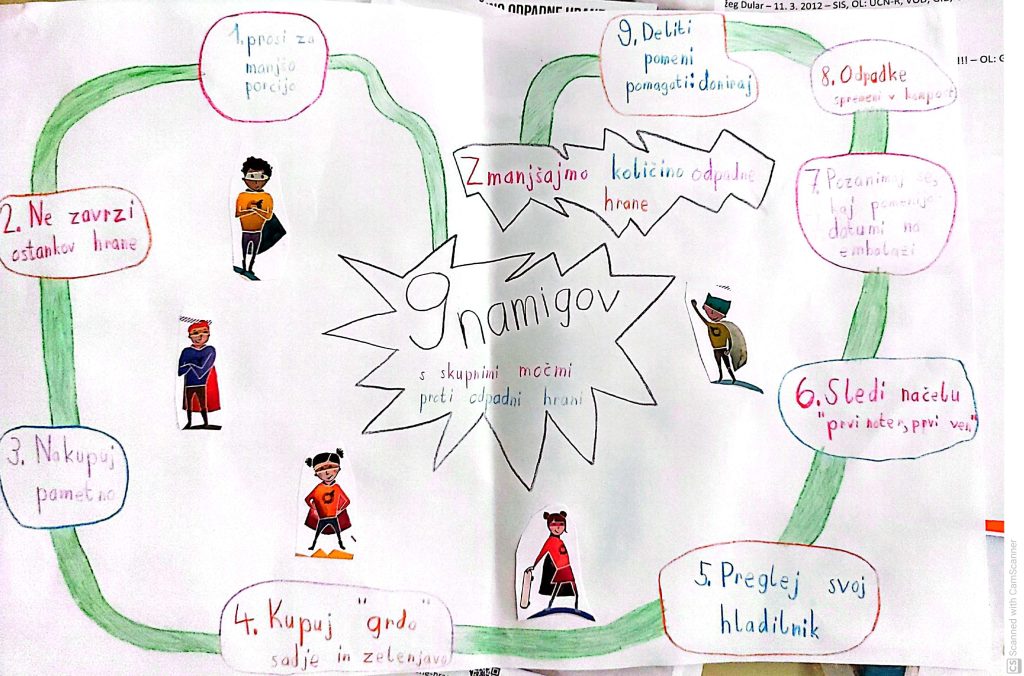 žeg Dular – 11. 3. 2012 – SIS, OL:
!!! – OL:
ODPADNE
1. prosi za
manjšo
porcijo
2. Ne zavrzi
ostankov hrane
3. Nakupuj
pametno
4. Kupuj "grdo"
sadje in zelenjavo
5. Preglej svoj
hladilnik
6. Sledi načelu
"prvi noter, prvi ven"
7. Pozanimaj se,
kaj pomenijo
datumi na
embalaži
8. Odpadke
spremeni v kompost
9. Deliti
pomeni
pomagati: doniraj
Zmanjšajmo količino odpadne
hrane
9 namigov
s skupnimi močmi
proti odpadni hrani
CS Scanned with CamScanner